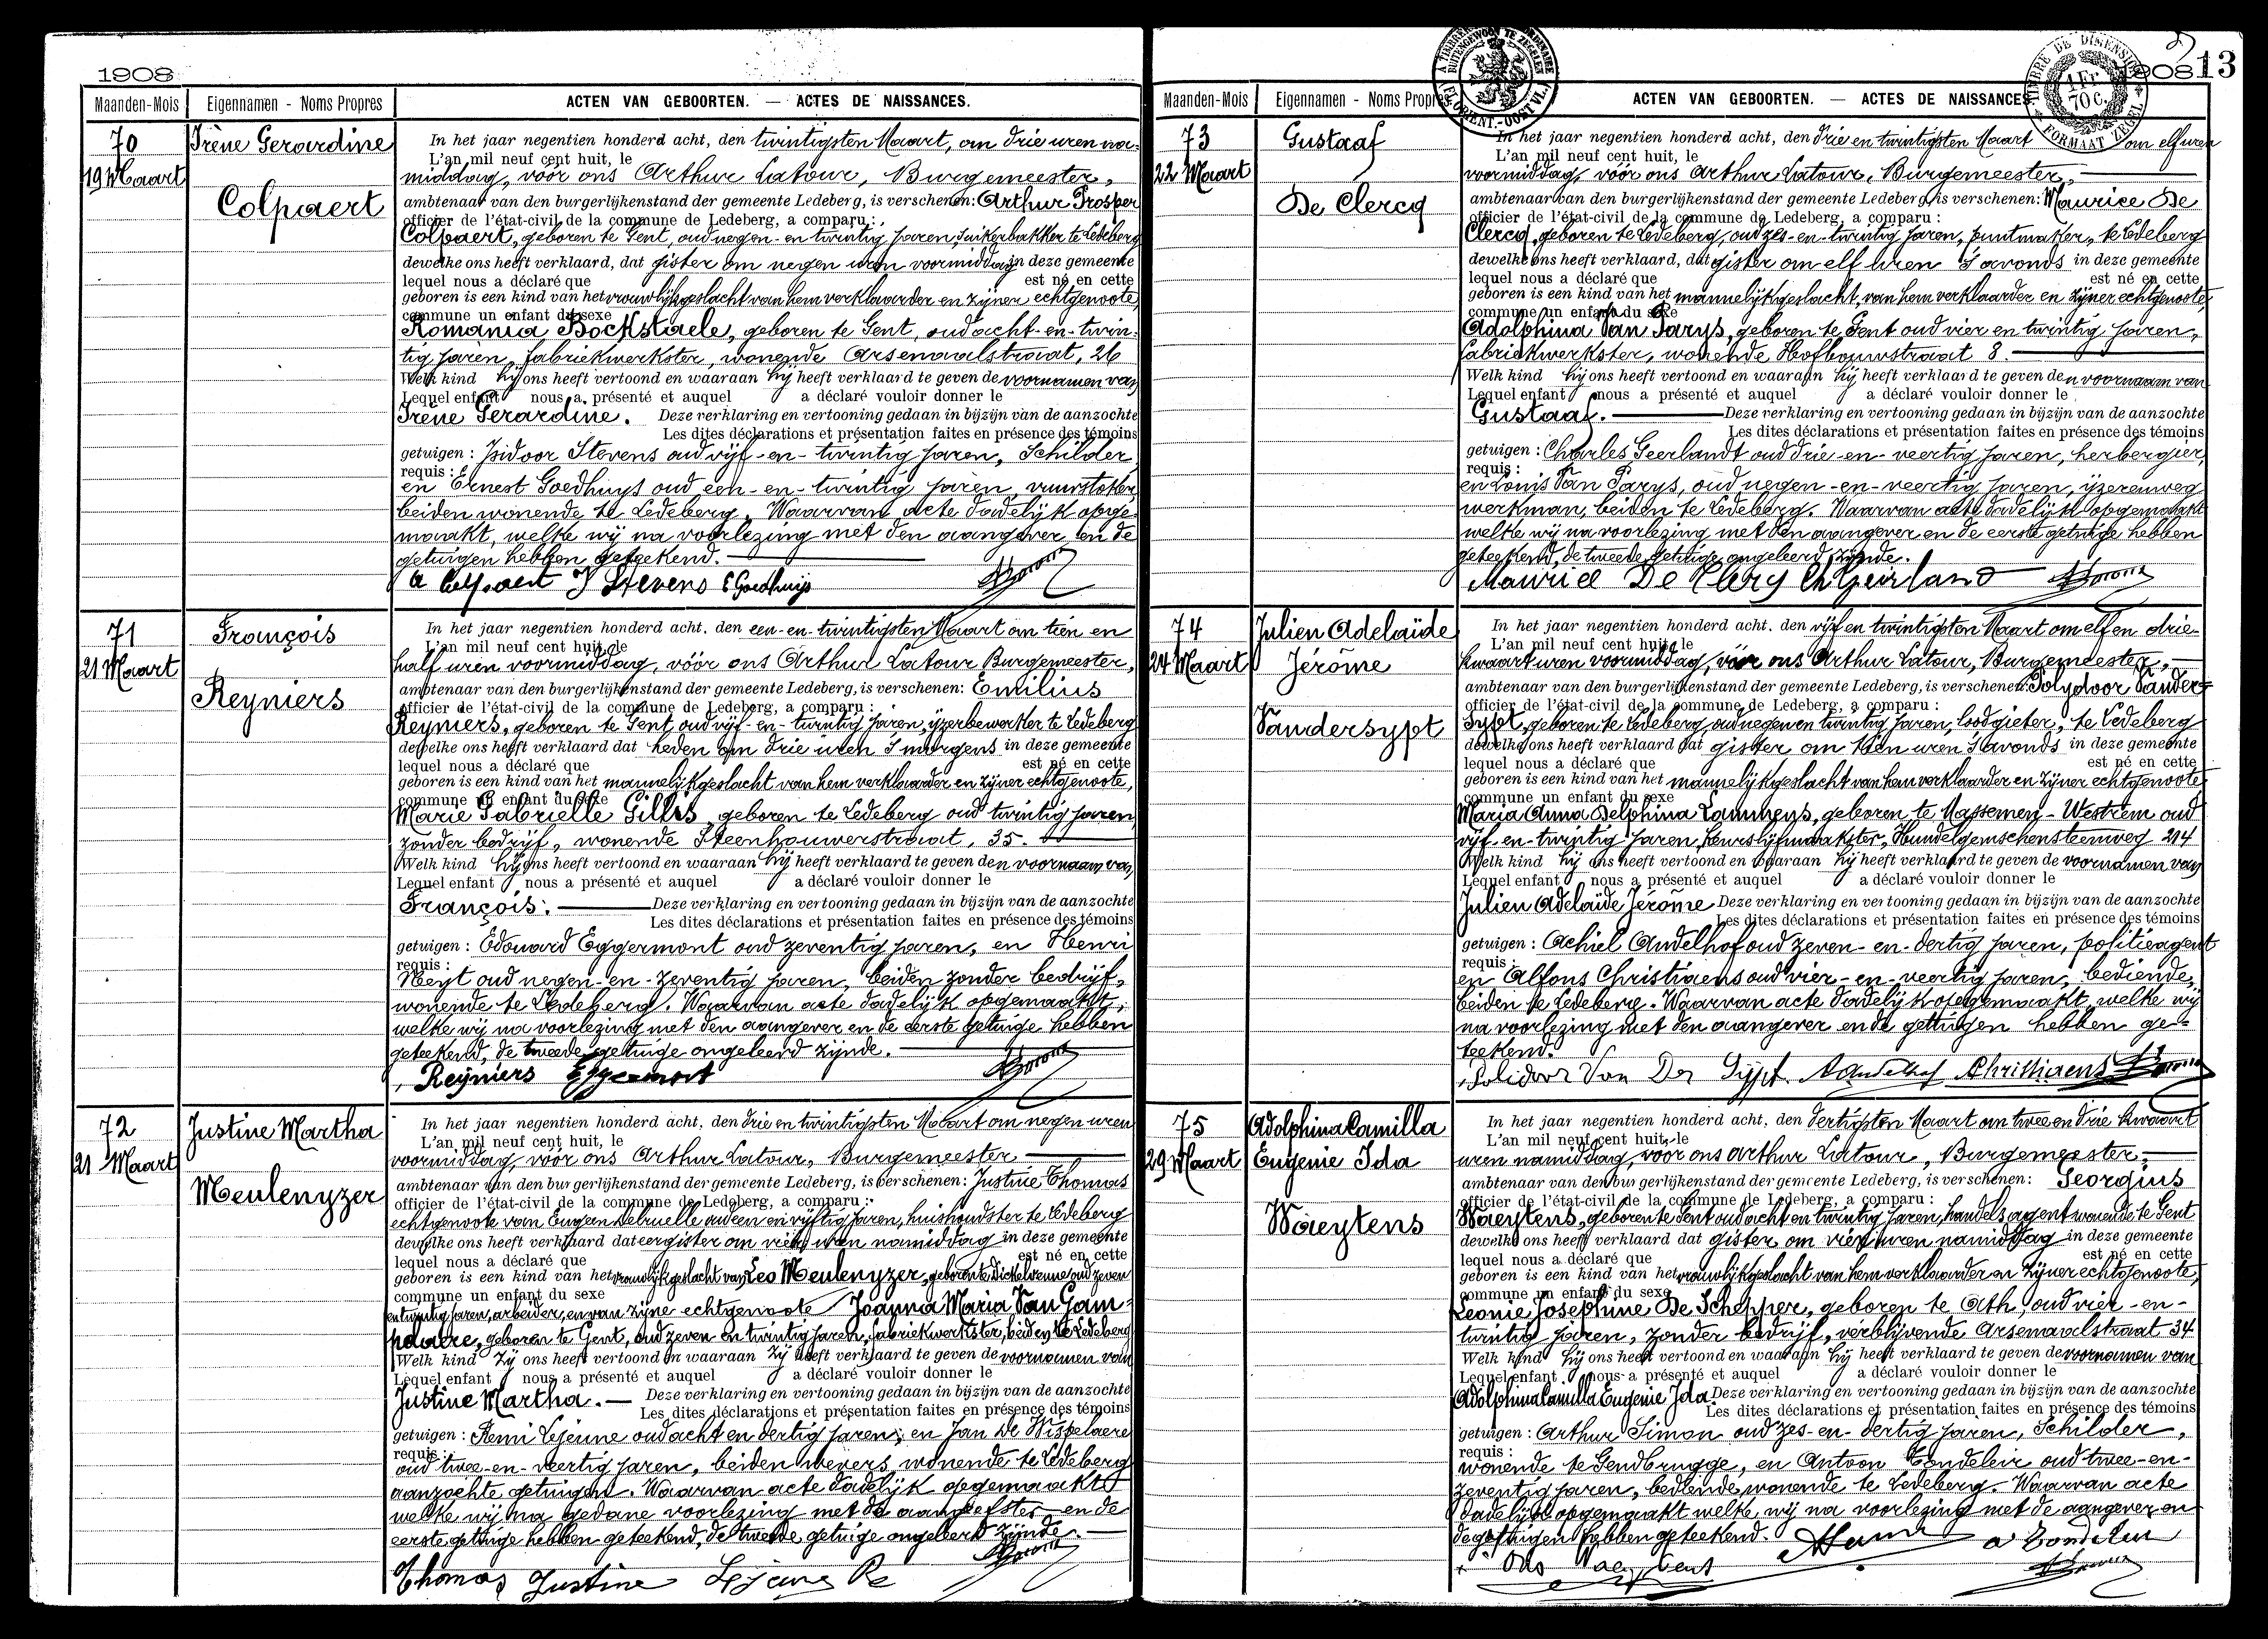 1908
Maanden-Mois Eigennamen - Noms Propres ACTEN VAN GEBOORTEN. — ACTES DE NAISSANCES.
70
19 Maart
Irène Gerardine
Colpaert
In het jaar negentien honderd acht, den twintigsten Maart, om drie uren na-
L'an mil neuf cent huit, le
middag, vóór ons Arthur Latour, Burgemeester,
ambtenaar van den burgerlijkenstand der gemeente Ledeberg, is verschenen: Arthur Prosper
officier de l'état-civil de la commune de Ledeberg, a comparu :
Colpaert, geboren te Gent, oud negen-en-twintig jaren, suikerbakker te Ledeberg
dewelke ons heeft verklaard, dat gister om negen uren voormiddag in deze gemeente
lequel nous a déclaré que est né en cette
geboren is een kind van het vrouwlijkgeslacht van hem verklaarder en zijner echtgenoote,
commune un enfant du sexe
Romania Bockstaele, geboren te Gent, oud acht-en-twin-
tig jaren, fabriekwerkster, wonende Arsenaalstraat, 26
Welk kind hij ons heeft vertoond en waaraan hij heeft verklaard te geven de voornamen van
Lequel enfant nous a présenté et auquel a déclaré vouloir donner le
Irène Gerardine. Deze verklaring en vertooning gedaan in bijzijn van de aanzochte
Les dites déclarations et présentation faites en présence des témoins
getuigen : Isidoor Stevens oud vijf-en-twintig jaren, Schilder
requis :
en Ernest Goedhuys oud een-en-twintig jaren, vuurstoker,
beiden wonende te Ledeberg. Waarvan acte dadelijk opge-
maakt, welke wij na voorlezing met den aangever en de
getuigen hebben geteekend.
A Colpaert J Stevens E Goedhuijs
71
21 Maart
François
Reyniers
In het jaar negentien honderd acht. den een-en-twintigsten Maart om tien en
L'an mil neuf cent huit, le
half uren voormiddag, vóór ons Arthur Latour Burgemeester,
ambtenaar van den burgerlijkenstand der gemeente Ledeberg, is verschenen: Emilius
officier de l'état-civil de la commune de Ledeberg, a comparu :
Reyniers, geboren te Gent, oud vijf-en-twintig jaren, ijzerbewerker te Ledeberg
dewelke ons heeft verklaard dat heden om drie uren 's morgens in deze gemeente
lequel nous a déclaré que est né en cette
geboren is een kind van het mannelijkgeslacht van hem verklaarder en zijner echtgenoote,
commune un enfant du sexe
Marie Gabrielle Gillis, geboren te Ledeberg oud twintig jaren,
zonder bedrijf, wonende Steenhouwerstraat, 35.
Welk kind hij ons heeft vertoond en waaraan hij heeft verklaard te geven den voornaam van
Lequel enfant nous a présenté et auquel a déclaré vouloir donner le
François. Deze verklaring en vertooning gedaan in bijzijn van de aanzochte
Les dites déclarations et présentation faites en présence des témoins
getuigen : Edouard Eggermont oud zeventig jaren, en Henri
requis :
Neyt oud negen-en-zeventig jaren, beiden zonder bedrijf,
wonende te Ledeberg. Waarvan acte dadelijk opgemaakt,
welke wij na voorlezing met den aangever en de eerste getuige hebben
geteekend, de tweede getuige ongeleerd zijnde.
Reyniers Eggermont
72
21 Maart
Justine Martha
Meulenyzer
In het jaar negentien honderd acht. den drie en twintigsten Maart om negen uren
L'an mil neuf cent huit, le
voormiddag, vóór ons Arthur Latour, Burgemeester
ambtenaar van den burgerlijkenstand der gemeente Ledeberg, is verschenen: Justine Thomas
officier de l'état-civil de la commune de Ledeberg, a comparu :
echtgenoote van Eugeen Delruelle oud een en vijftig jaren, huishoudster te Ledeberg
dewelke ons heeft verklaard dat eergister om vier uren namiddag in deze gemeente
lequel nous a déclaré que est né en cette
geboren is een kind van het vrouwlijkgeslacht van Leo Meulenyzer, geboren te Dickelvenne oud zeven
commune un enfant du sexe
en twintig jaren, arbeider, en van zijne echtgenoote Joanna Maria Van Gam-
pelaere, geboren te Gent, oud zeven en twintig jaren, fabriekwerkster, beiden te Ledeberg
Welk kind zij ons heeft vertoond en waaraan zij heeft verklaard te geven de voornamen van
Lequel enfant nous a présenté et auquel a déclaré vouloir donner le
Justine Martha. — Deze verklaring en vertooning gedaan in bijzijn van de aanzochte
Les dites déclarations et présentation faites en présence des témoins
getuigen : Remi Lejeune oud acht en dertig jaren, en Jan De Wispelaere
requis :
oud twee-en-veertig jaren, beiden wevers wonende te Ledeberg
aanzochte getuigen. Waarvan acte dadelijk opgemaakt
welke wij na gedane voorlezing met de aangeefster en de
eerste getuige hebben geteekend, de tweede getuige ongeleerd zijnde.
Thomas Justine Lejeune Re
1908 13
TIMBRE DE DIMENSION
1 Fr. 70 c.
FORMAAT ZEGEL
Maanden-Mois Eigennamen - Noms Propres ACTEN VAN GEBOORTEN. — ACTES DE NAISSANCES.
73
22 Maart
Gustaaf
De Clercq
In het jaar negentien honderd acht, den drie en twintigsten Maart om elf uren
L'an mil neuf cent huit, le
voormiddag, vóór ons Arthur Latour, Burgemeester,
ambtenaar van den burgerlijkenstand der gemeente Ledeberg, is verschenen: Maurice De
officier de l'état-civil de la commune de Ledeberg, a comparu :
Clercq, geboren te Ledeberg, oud zes-en-twintig jaren, puntmaker, te Ledeberg
dewelke ons heeft verklaard, dat gister om elf uren 's avonds in deze gemeente
lequel nous a déclaré que est né en cette
geboren is een kind van het mannelijkgeslacht, van hem verklaarder en zijner echtgenoote,
commune un enfant du sexe
Adolphina Van Parys, geboren te Gent oud vier en twintig jaren,
fabriekwerkster, wonende Hofbouwstraat 8.
Welk kind hij ons heeft vertoond en waaraan hij heeft verklaard te geven den voornaam van
Lequel enfant nous a présenté et auquel a déclaré vouloir donner le
Gustaaf. Deze verklaring en vertooning gedaan in bijzijn van de aanzochte
Les dites déclarations et présentation faites en présence des témoins
getuigen : Charles Geerlandt oud drie-en-veertig jaren, herbergier,
requis :
en Louis Van Parys, oud negen-en-veertig jaren, ijzerenweg
werkman, beiden te Ledeberg. Waarvan acte dadelijk opgemaakt
welke wij na voorlezing met den aangever en de eerste getuige hebben
geteekend, de tweede getuige ongeleerd zijnde.
Maurice De Clercq Ch Geirland
74
24 Maart
Julien Adelaïde
Jérôme
Vandersypt
In het jaar negentien honderd acht. den vijf en twintigsten Maart om elf en drie-
L'an mil neuf cent huit, le
kwaart uren voormiddag, vóór ons Arthur Latour, Burgemeester,
ambtenaar van den burgerlijkenstand der gemeente Ledeberg, is verschenen: Polydoor Vander-
officier de l'état-civil de la commune de Ledeberg, a comparu :
Sypt, geboren te Ledeberg, oud negen en twintig jaren, loodgieter, te Ledeberg
dewelke ons heeft verklaard dat gister om tien uren 's avonds in deze gemeente
lequel nous a déclaré que est né en cette
geboren is een kind van het mannelijkgeslacht van hem verklaarder en zijner echtgenoote
commune un enfant du sexe
Maria Anna Delphina Lammens, geboren te Massemen-Westrem oud
vijf-en-twintig jaren, keurslijfmaakster, Hundelgemschensteenweg 214
Welk kind hij ons heeft vertoond en waaraan hij heeft verklaard te geven de voornamen van
Lequel enfant nous a présenté et auquel a déclaré vouloir donner le
Julien Adelaïde Jérôme Deze verklaring en vertooning gedaan in bijzijn van de aanzochte
Les dites déclarations et présentation faites en présence des témoins
getuigen : Achiel Andelhof oud zeven-en-dertig jaren, politieagent
requis :
en Alfons Christiaens oud vier-en-veertig jaren, bediende,
beiden te Ledeberg. Waarvan acte dadelijk opgemaakt, welke wij
na voorlezing met den aangever en de getuigen hebben ge-
teekend.
Polidoor Van Der Sypt. Aandelhof Christiaens
75
29 Maart
Adolphina Camilla
Eugenie Ida
Waeytens
In het jaar negentien honderd acht. den dertigsten Maart om twee en drie kwaart
L'an mil neuf cent huit, le
uren namiddag, voor ons Arthur Latour, Burgemeester,
ambtenaar van den burgerlijkenstand der gemeente Ledeberg, is verschenen: Georgius
officier de l'état-civil de la commune de Ledeberg, a comparu :
Waeytens, geboren te Gent oud acht en twintig jaren, handelsagent wonende te Gent
dewelke ons heeft verklaard dat gister om vier uren namiddag in deze gemeente
lequel nous a déclaré que est né en cette
geboren is een kind van het vrouwlijkgeslacht van hem verklaarder en zijner echtgenoote,
commune un enfant du sexe
Leonie Josephine De Schepper, geboren te Ath, oud vier-en-
twintig jaren, zonder bedrijf, verblijvende Arsenaalstraat 34
Welk kind hij ons heeft vertoond en waaraan hij heeft verklaard te geven de voornamen van
Lequel enfant nous a présenté et auquel a déclaré vouloir donner le
Adolphina Camilla Eugenie Ida Deze verklaring en vertooning gedaan in bijzijn van de aanzochte
Les dites déclarations et présentation faites en présence des témoins
getuigen : Arthur Simon oud zes-en-dertig jaren, Schilder,
requis :
wonende te Gendbrugge, en Antoon Tondeleir oud twee-en-
zeventig jaren, bediende, wonende te Ledeberg. Waarvan acte
dadelijk opgemaakt welke wij na voorlezing met de aangever en
de getuigen hebben geteekend.